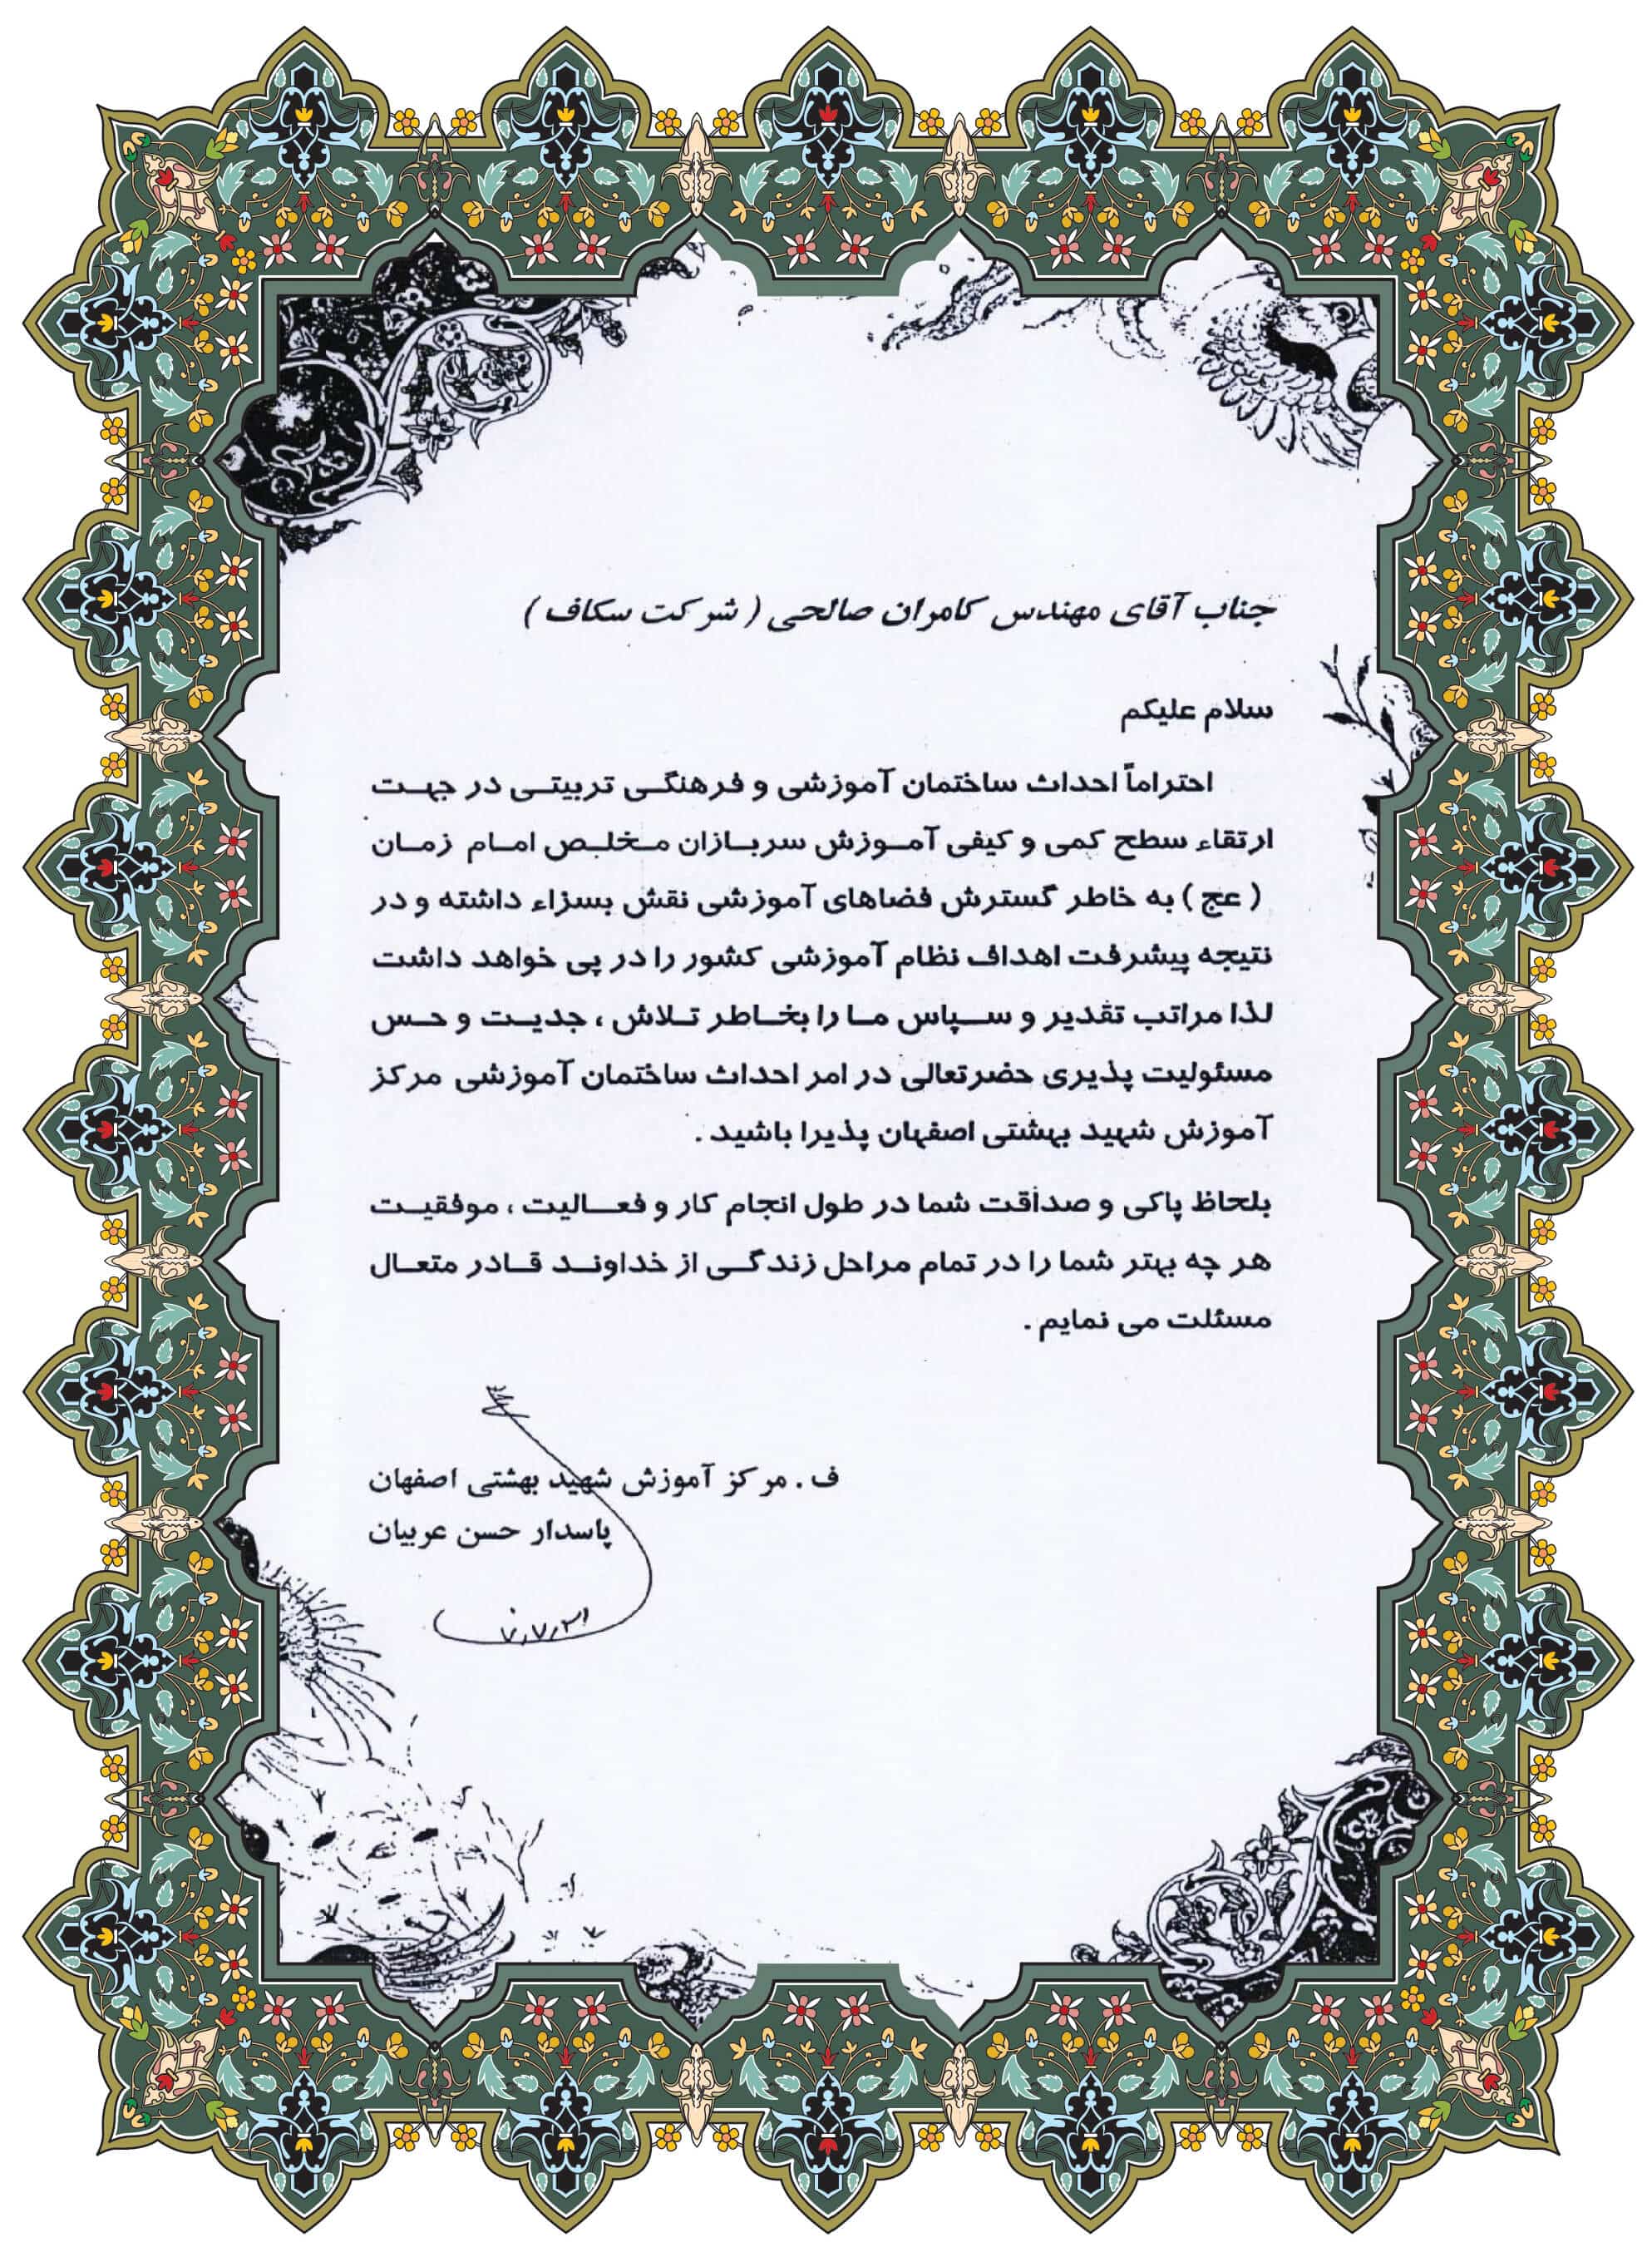 جناب آقای مهندس کامران صالحی ( شرکت سکاف )
سلام علیکم
احتراماً احداث ساختمان آموزشی و فرهنگی تربیتی در جهت
ارتقاء سطح کمی و کیفی آموزش سربازان مخلص امام زمان
( عج ) به خاطر گسترش فضاهای آموزشی نقش بسزاء داشته و در
نتیجه پیشرفت اهداف نظام آموزشی کشور را در پی خواهد داشت
لذا مراتب تقدیر و سپاس ما را بخاطر تلاش ، جدیت و حس
مسئولیت پذیری حضرتعالی در امر احداث ساختمان آموزشی مرکز
آموزش شهید بهشتی اصفهان پذیرا باشید .
بلحاظ پاکی و صداقت شما در طول انجام کار و فعالیت ، موفقیت
هر چه بهتر شما را در تمام مراحل زندگی از خداوند قادر متعال
مسئلت می نمایم .
ف . مرکز آموزش شهید بهشتی اصفهان
پاسدار حسن عربیان